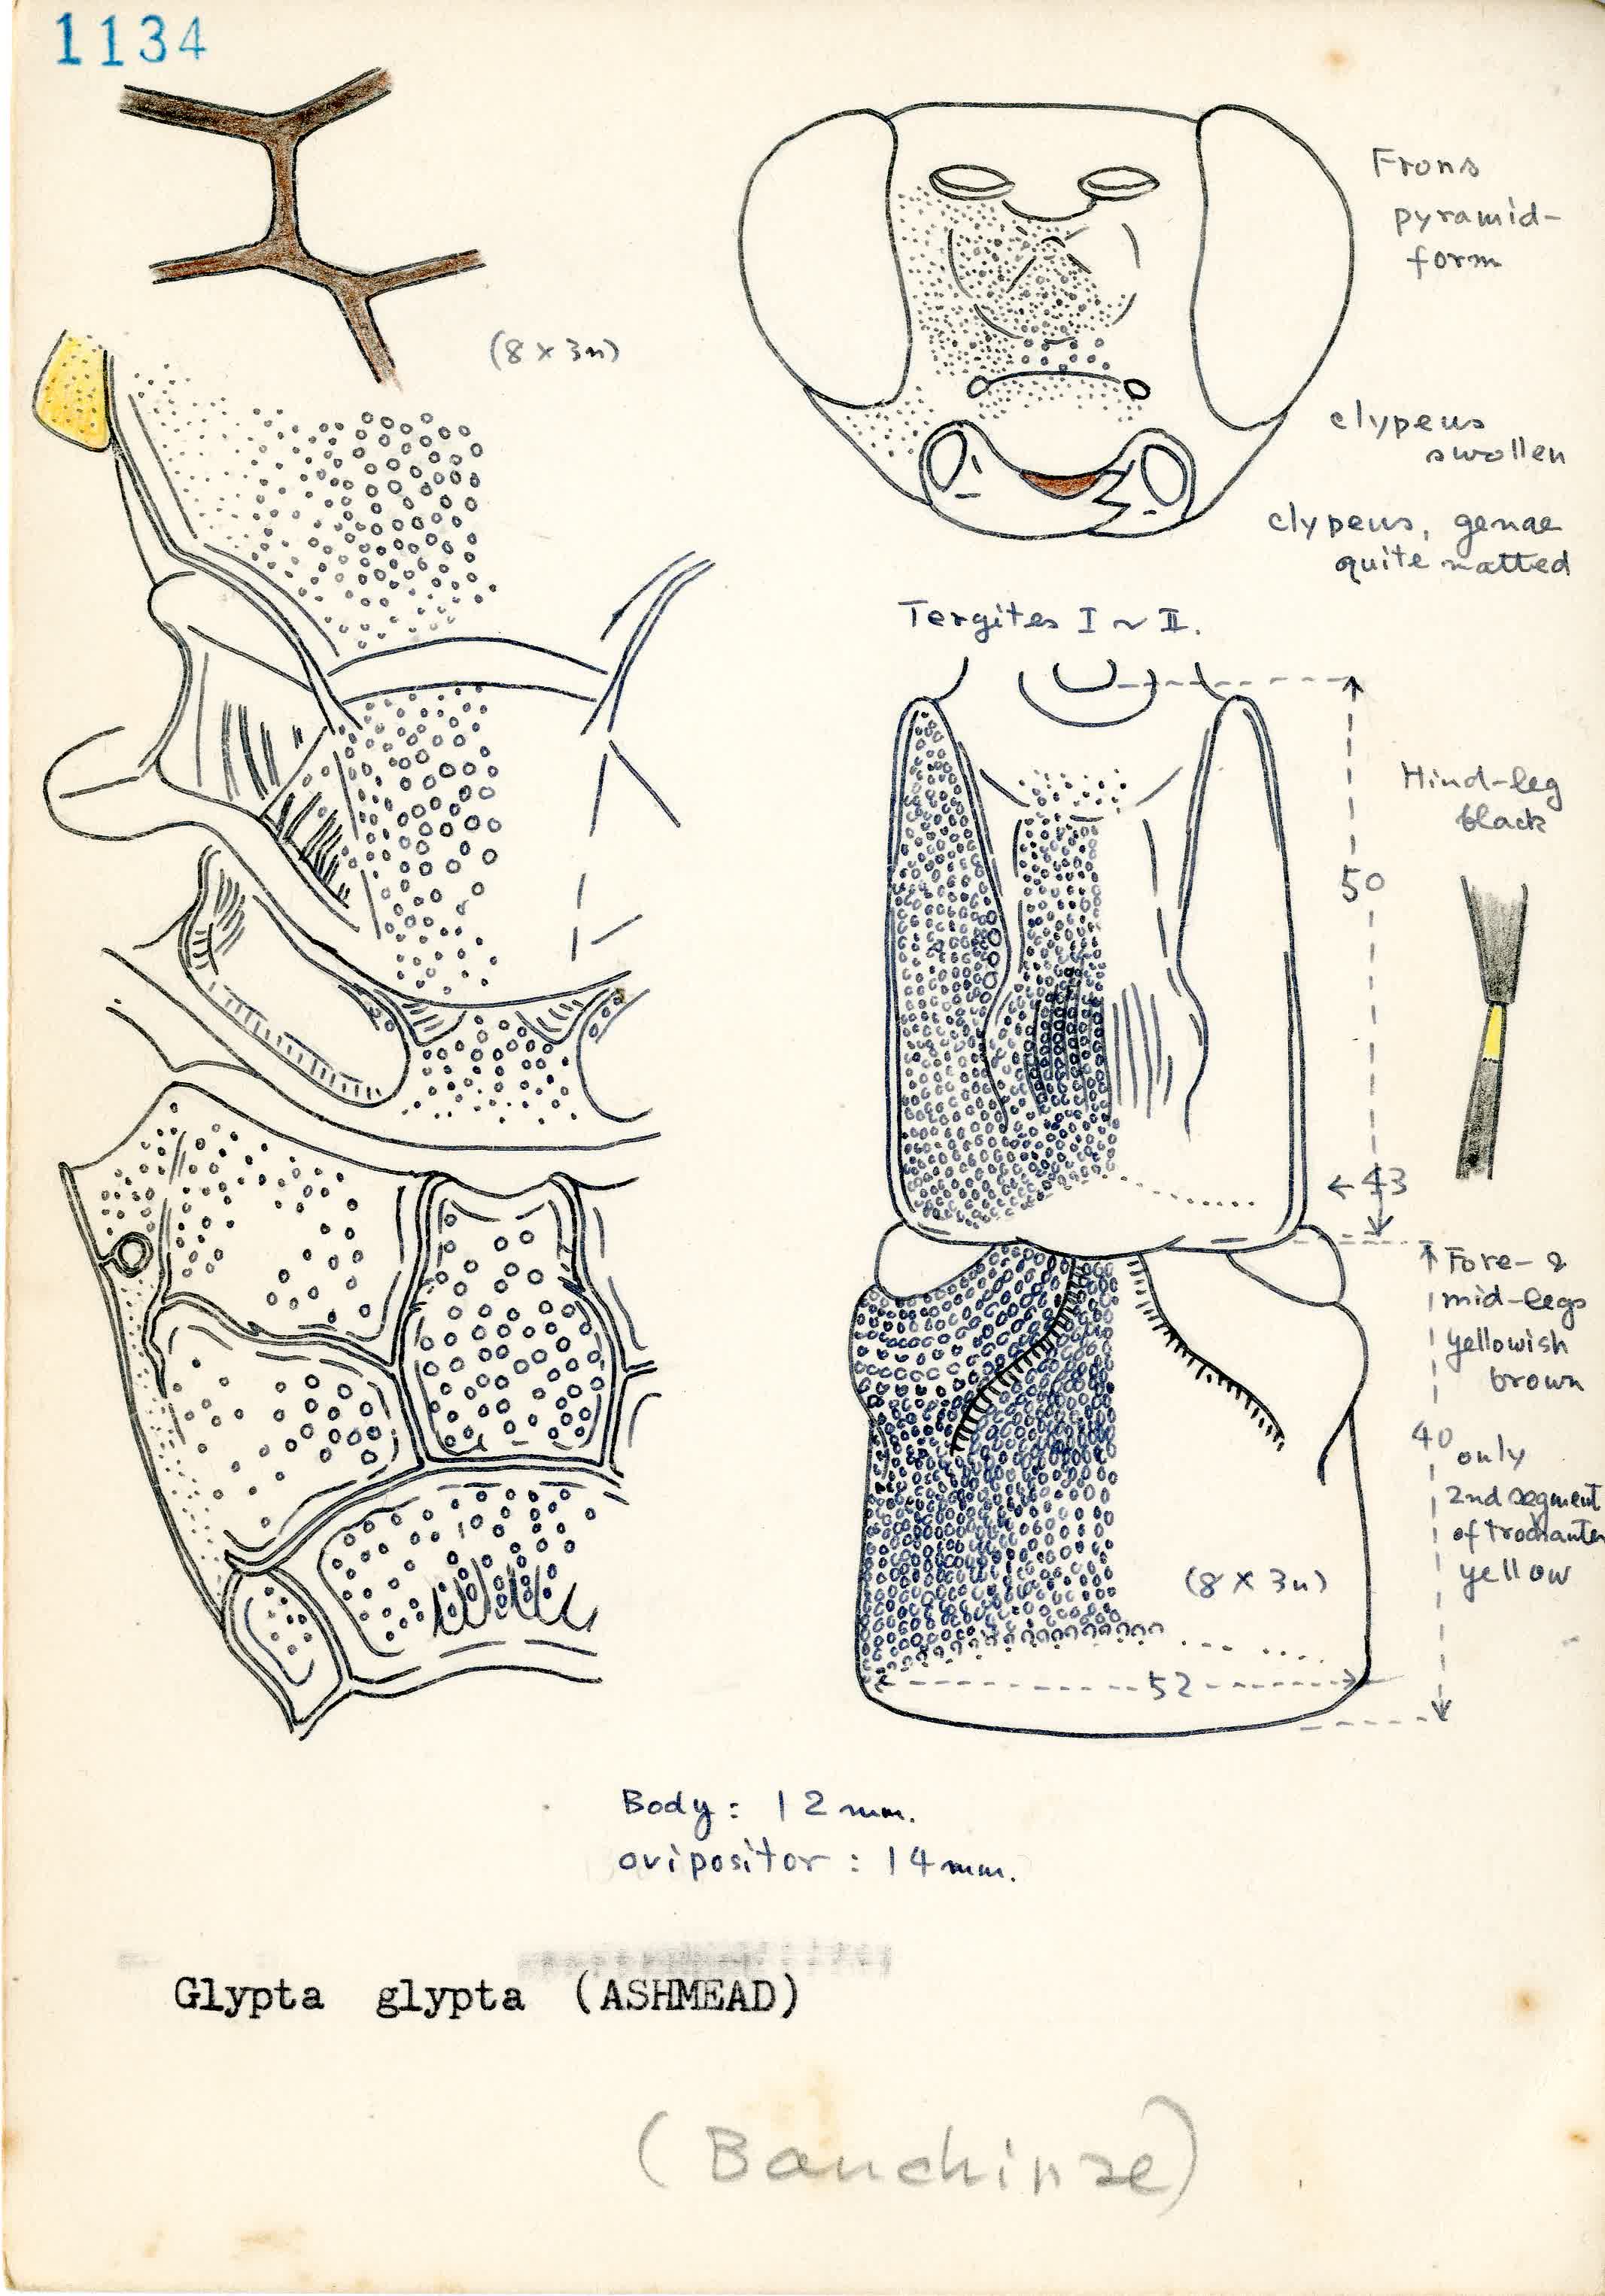 1134
(8 x 3n)
Frons
pyramid-
form
clypeus
swollen
clypeus, genae
quite matted
Tergites I ~ II.
Hind-leg
black
50
←43
Fore- &
mid-legs
yellowish
brown
40
only
2nd segment
of trochanter
yellow
(8 x 3n)
52
Body: 12 mm.
ovipositor: 14 mm.
Glypta glypta (ASHMEAD)
(Banchinae)